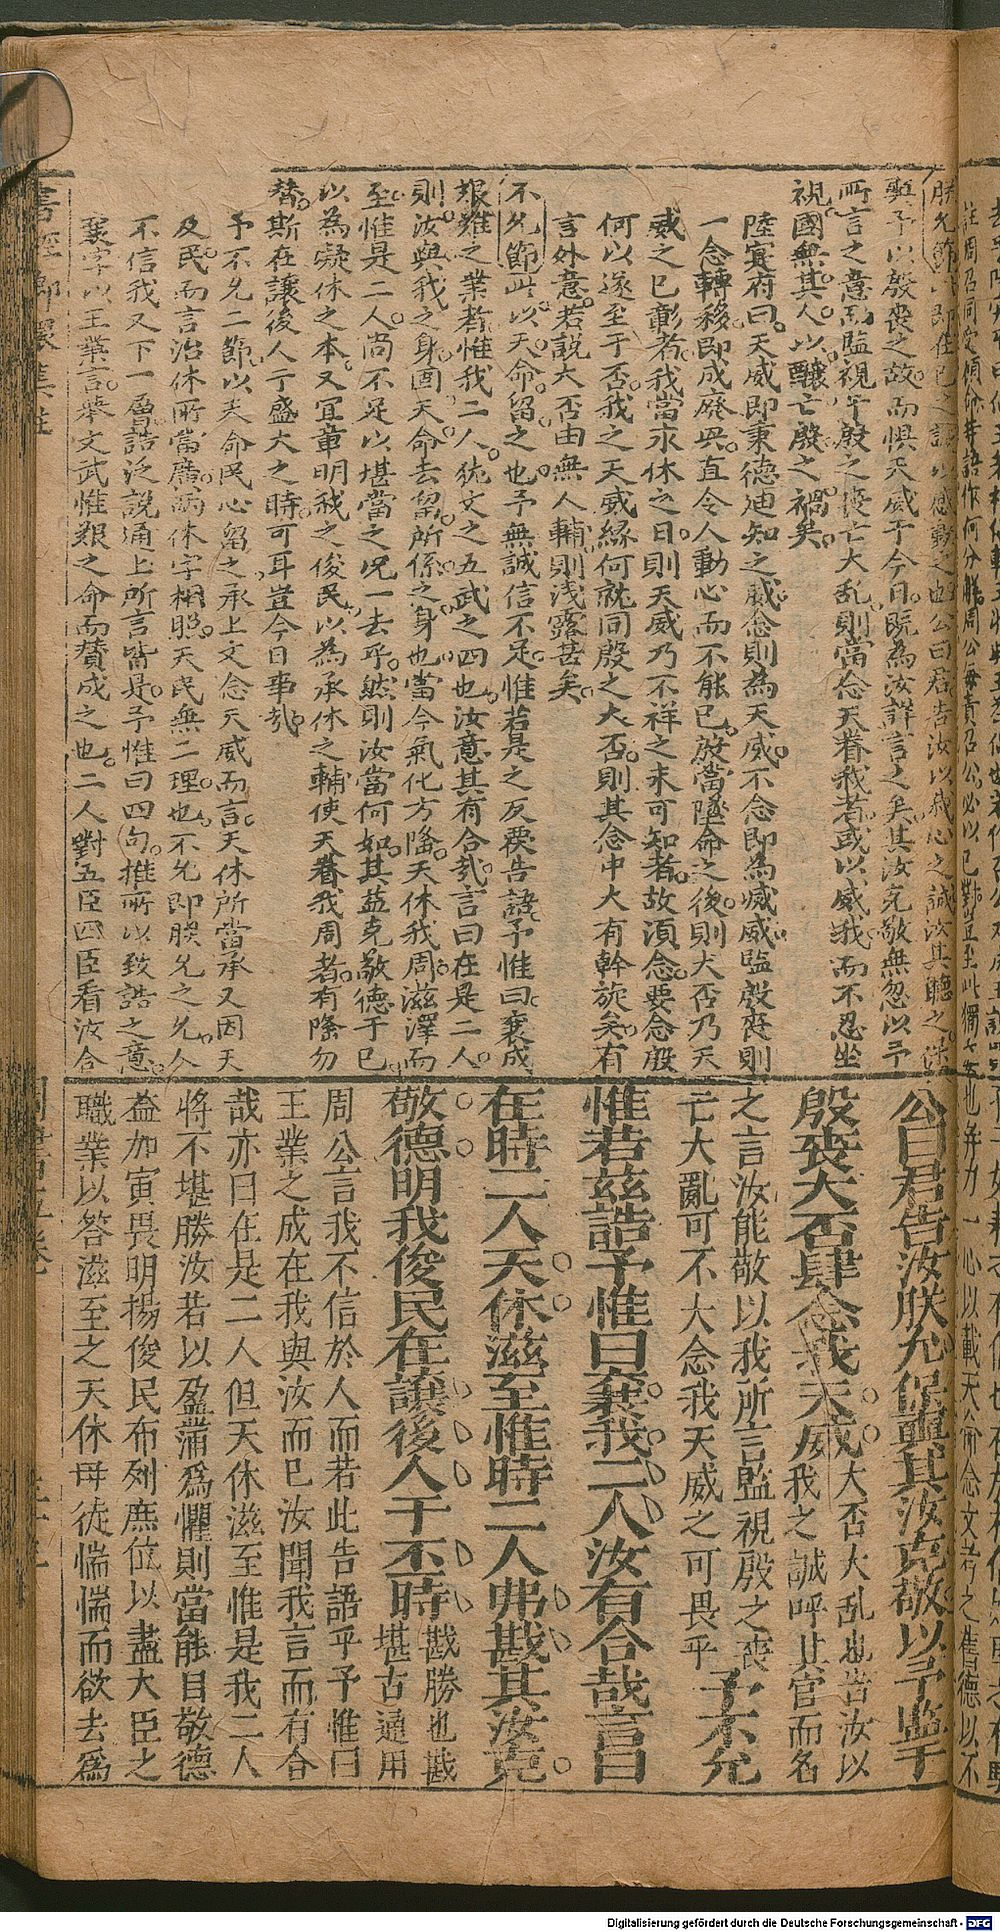 朕允節
聖予以殷喪之故而惧天威于今日既為汝詳言之矣其汝克敬無忽以予
所言之意而監視乎殷之喪亡大乱則當念天眷我若或以威我而不忍坐
視國無其人以釀亡殷之禍矣
陸實府曰天威即秉德迪知之威念則為天威不念即為威威監殷喪則
一念轉移即成廢興直令人動心而不能已故當墜命之後則大否乃天
威之已彰者我當求休之日則天威乃不祥之末可知者故湏念要念殷
何以遂至于否我之天威縁何就同殷之大否則其念中大有幹旋矣有
言外意若說大否由無人輔則浅露甚矣
不允節此以天命留之也予無誠信不足惟若是之反覆告語予惟曰襄成
艱難之業者惟我二人㐬文之五武之四也汝意其有合哉言曰在是二人
則汝與我之身固天命去留所係之身也當今氣化方隆天休我周滋澤而
至惟是二人尚不足以堪當之况一去乎然則汝當何如其益克敬德于已
以為凝休之本又冝章明我之俊民以為承休之輔使天眷我周者有隆勿
替斯在讓後人于盛大之時可耳豈今日事哉
予不允二節以天命民心留之承上文念天威而言天休所當承又因天
及民而言治休所當廣兩休字相照天民無二理也不允即朕允之允今
不信我又下一層誥泛說通上所言皆是予惟曰四句推所以致誥之意
襄字以王業言舉文武惟艱之命而賛成之也二人對五臣四臣看汝合
公曰君告汝朕允保奭其汝克敬以予監于
殷喪大否肆念我天威大否大乱也告汝以我之誠呼其官而名
之言汝能敬以我所言監視殷之喪亡大亂可不大念我天威之可畏乎予不允
惟若茲誥予惟曰襄我二人汝有合哉言曰
在時二人天休滋至惟時二人弗戡其汝克
敬德明我俊民在讓後人于丕時戡勝也戡堪古通用
周公言我不信於人而若此告語乎予惟曰
王業之成在我與汝而已汝聞我言而有合
哉亦曰在是二人但天休滋至惟是我二人
將不堪勝汝若以盈滿爲懼則當能自敬德
益加寅畏明揚俊民布列庶位以盡大臣之
職業以答滋至之天休毋徒惴惴而欲去爲
Digitalisierung gefördert durch die Deutsche Forschungsgemeinschaft - DFG